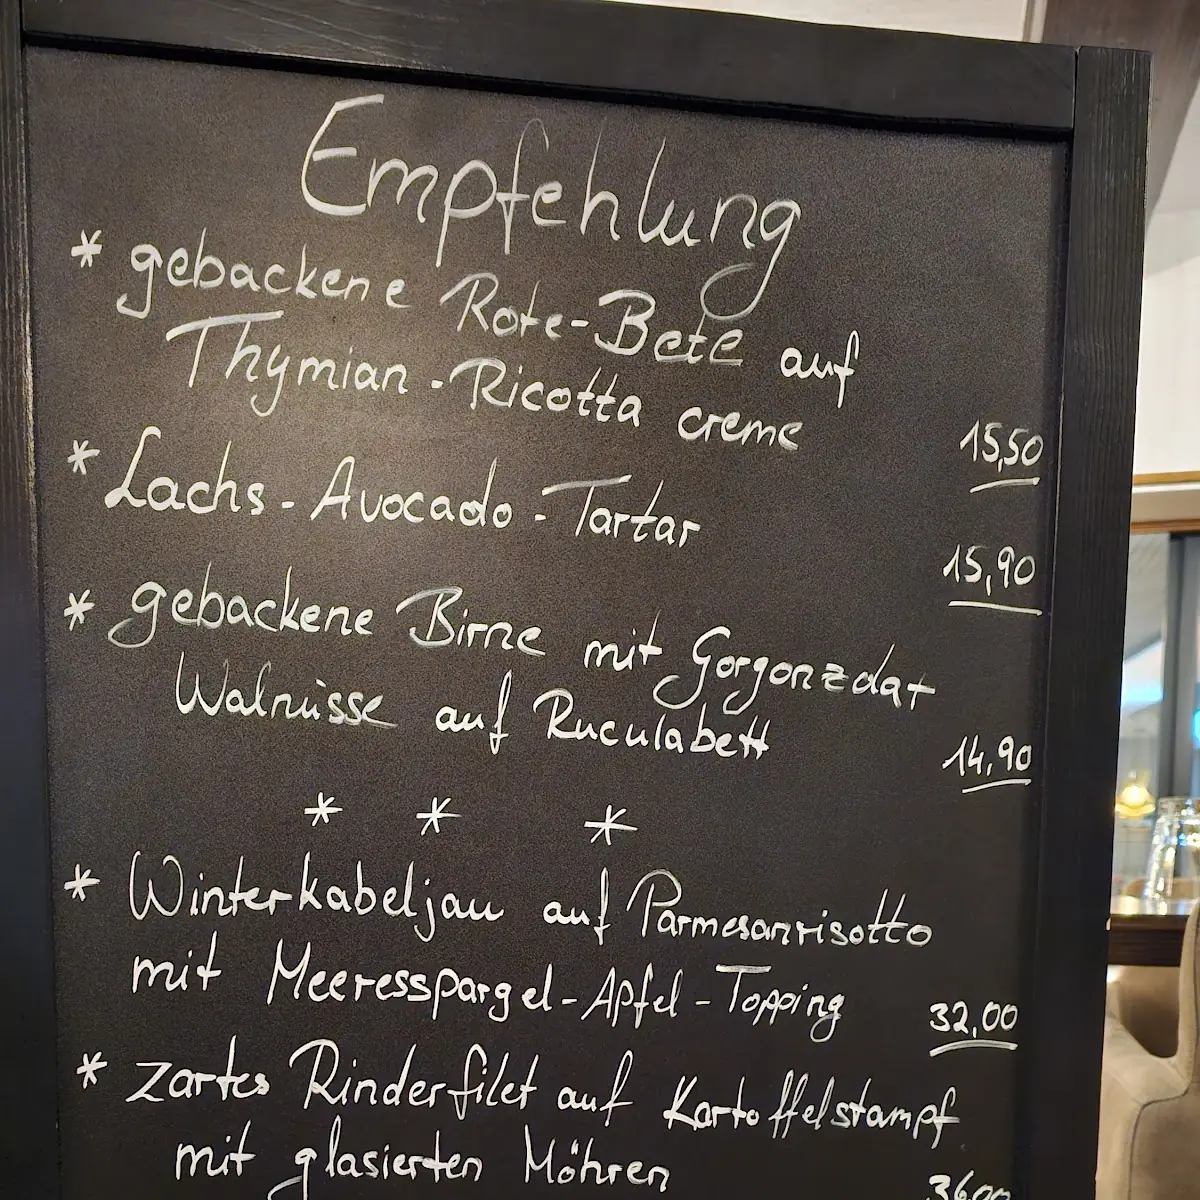 Empfehlung
* gebackene Rote-Bete auf
Thymian-Ricotta creme 15,50
* Lachs-Avocado-Tartar 15,90
* gebackene Birne mit Gorgonzola+
Walnüsse auf Ruculabett 14,90
* * *
* Winterkabeljau auf Parmesanrisotto
mit Meeresspargel-Apfel-Topping 32,00
* zartes Rinderfilet auf Kartoffelstampf
mit glasierten Möhren 36,00